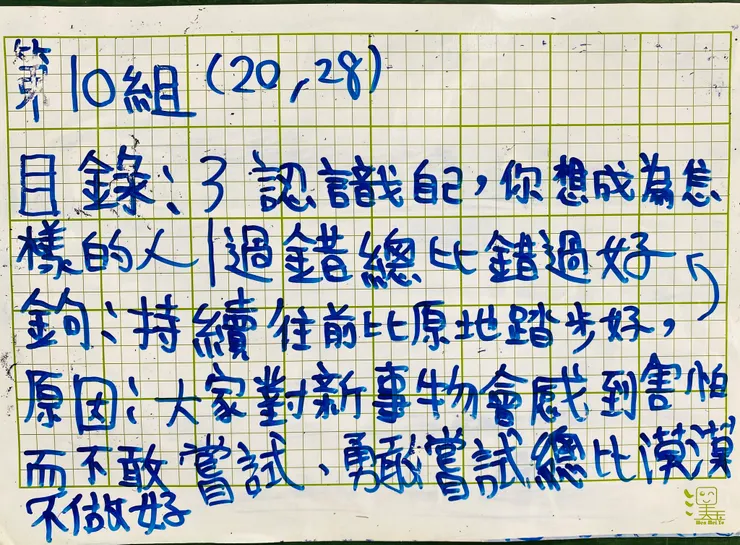 第10組(20,28)
目錄:3 認識自己,你想成為怎
樣的人|過錯總比錯過好
鉤:持續往前比原地踏步好,
原因:大家對新事物會感到害怕
而不敢嘗試、勇敢嘗試總比漠漠
不做好
Han Mei Te